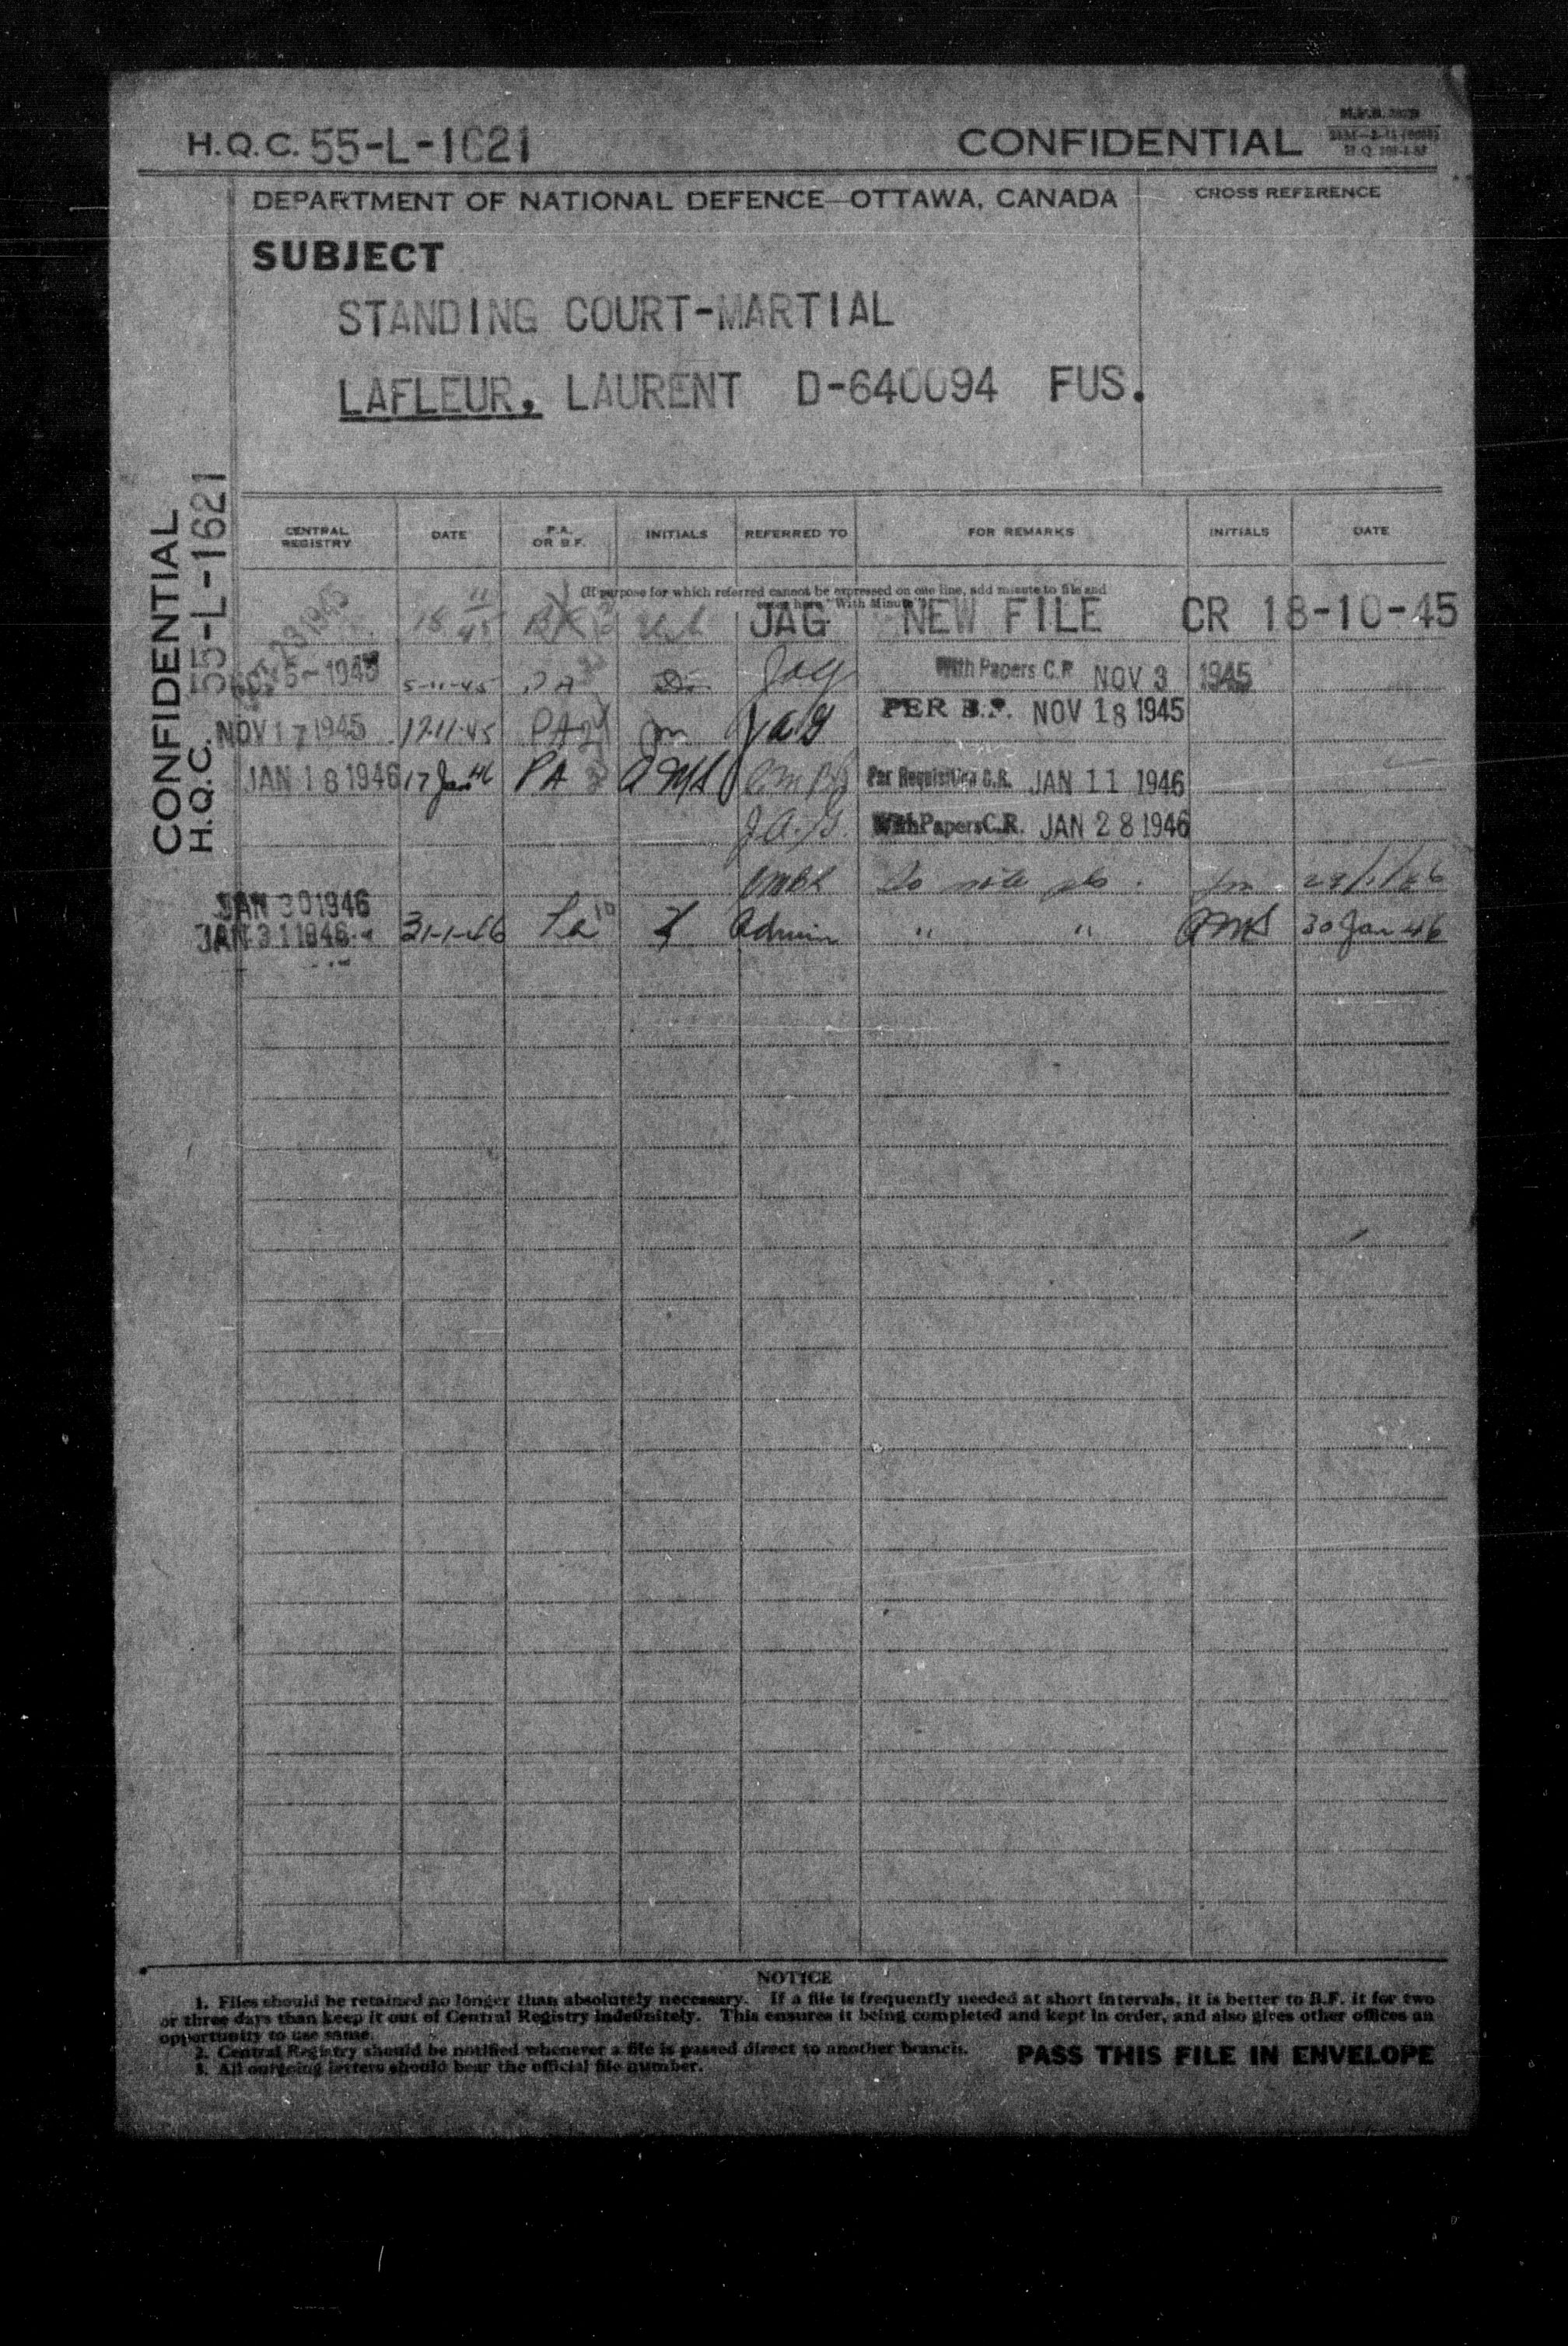 H.Q.C. 55-L-1621
CONFIDENTIAL
DEPARTMENT OF NATIONAL DEFENCE—OTTAWA, CANADA
CROSS REFERENCE
SUBJECT
STANDING COURT-MARTIAL
LAFLEUR, LAURENT D-640094 FUS.
CONFIDENTIAL
H.Q.C. 55-L-1621
CENTRAL REGISTRY DATE P.A. OR B.F. INITIALS REFERRED TO FOR REMARKS INITIALS DATE
(If purpose for which referred cannot be expressed on one line, add minute to file and
enter here "With Minute")
JAG NEW FILE CR 18-10-45
5-1945 5-11-45 PA Jag With Papers C.R. NOV 3 1945
NOV 17 1945 17-11-45 PA Jag PER B.F. NOV 18 1945
JAN 18 1946 17 Jan 46 PA AMS Per Requisition C.R. JAN 11 1946
J.A.G. With Papers C.R. JAN 28 1946
To note pls. 29/1/46
JAN 30 1946
JAN 31 1946 31-1-46 Pa Admin " " AMS 30 Jan 46
NOTICE
1. Files should be retained no longer than absolutely necessary. If a file is frequently needed at short intervals, it is better to B.F. it for two
or three days than keep it out of Central Registry indefinitely. This ensures it being completed and kept in order, and also gives other offices an
opportunity to use same.
2. Central Registry should be notified whenever a file is passed direct to another branch.
3. All outgoing letters should bear the official file number.
PASS THIS FILE IN ENVELOPE